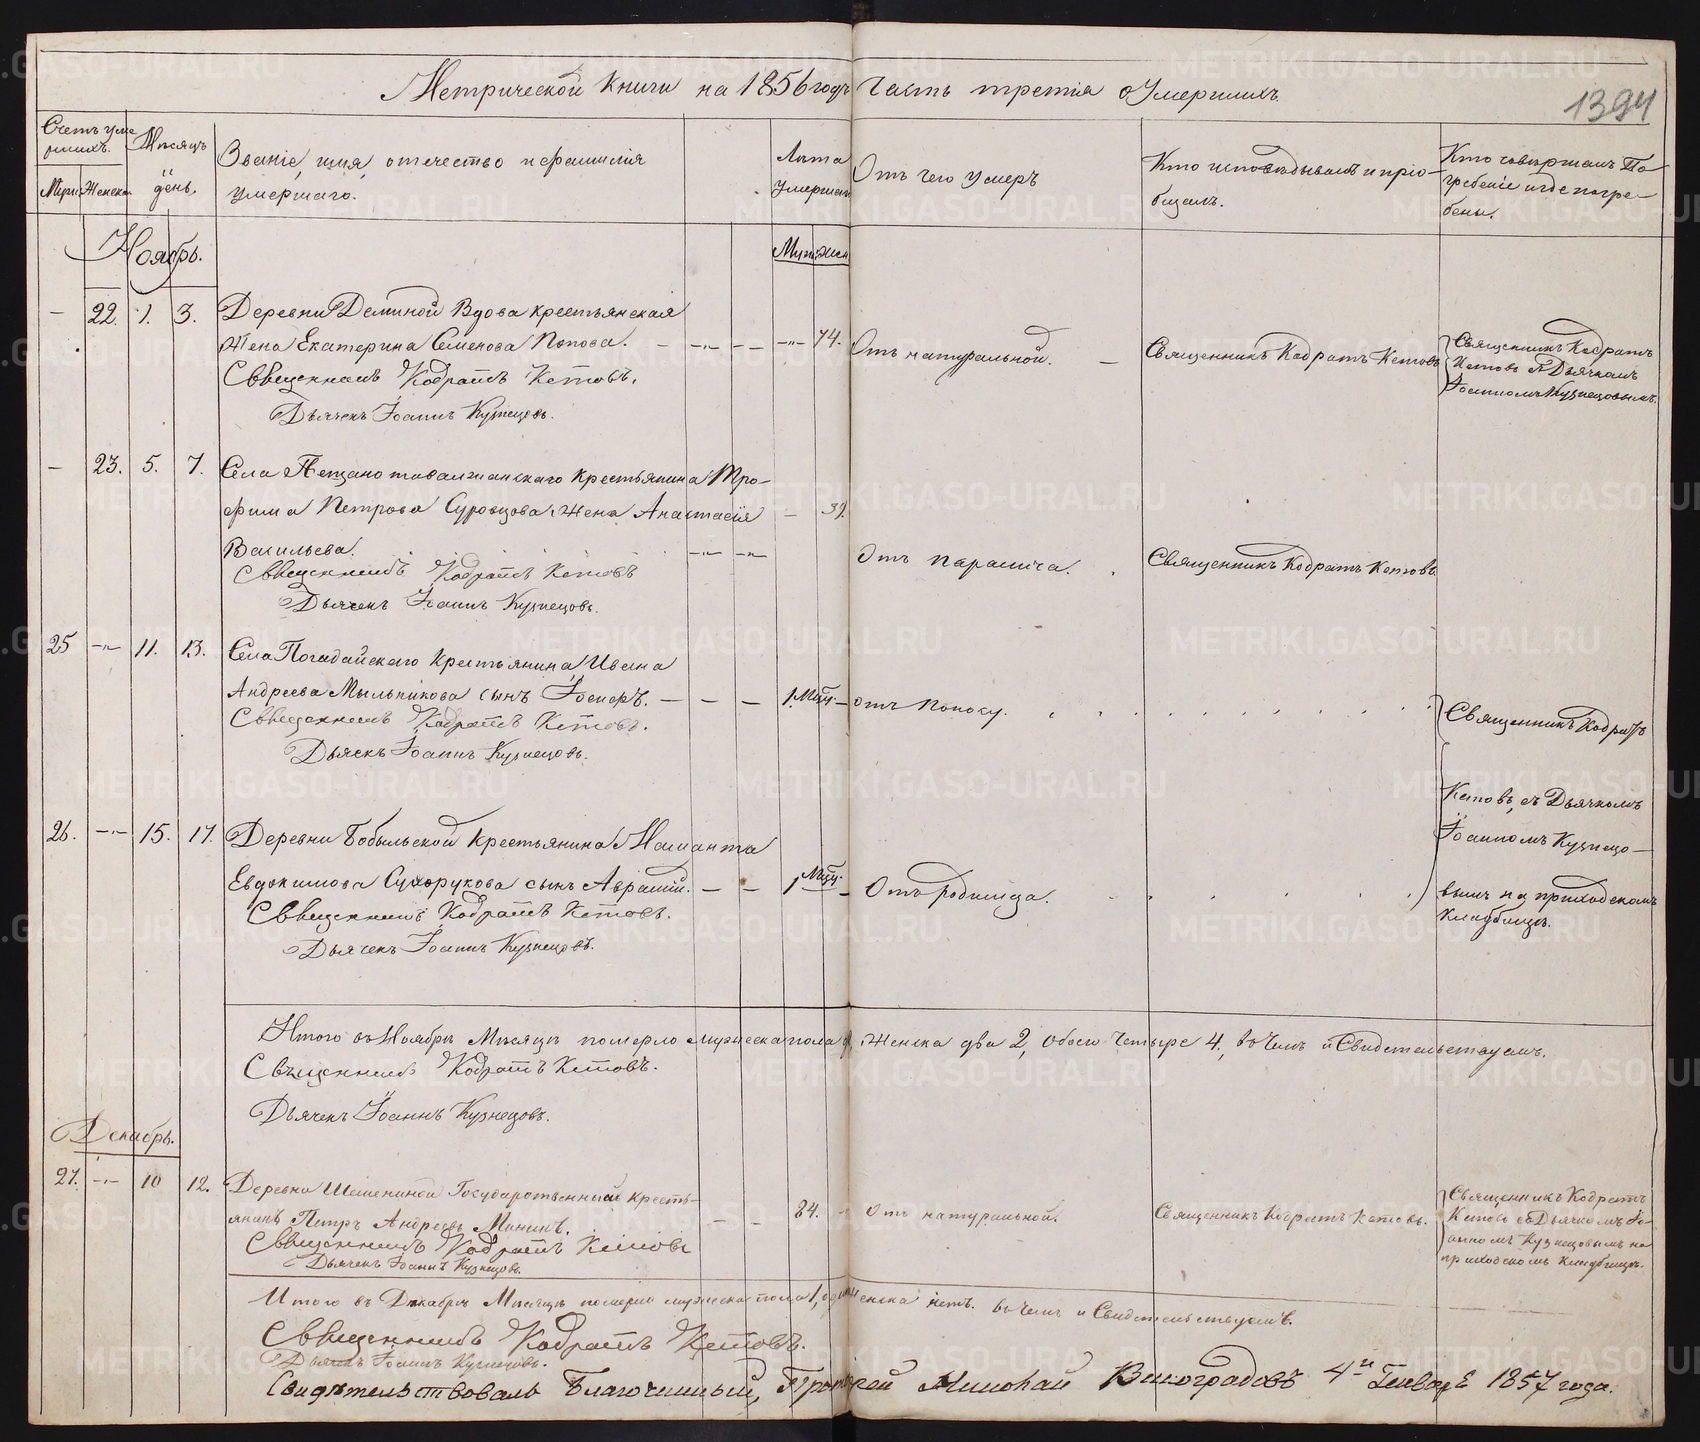 Метрической книги на 1856 годъ часть третія о умершихъ.
1394
Счетъ уме
ршихъ.
Мужс. Женска.
Мѣсяцъ
и
день.
Званіе, имя, отечество и фамилія
умершаго.
Лѣта
умершаго
Муж. жен
Отъ чего умеръ
Кто исповѣдывалъ и пріо-
бщалъ.
Кто совершалъ По-
гребеніе и гдѣ погре-
бены.
Ноябрь.
— 22. 1. 3. Деревни Деминой Вдова крестьянская
жена Екатерина Семенова Попова. 74. Отъ натуральной. Священникъ Кодратъ Кетовъ
Священникъ Кодратъ
Кетовъ съ Дьячкомъ
Іоанномъ Кузнецовымъ.
Священникъ Кодратъ Кетовъ.
Дьячекъ Іоаннъ Кузнецовъ.
— 23. 5. 7. Села крестьянина Тро-
фима Петрова Суровцова жена Анастасія
Васильева. Отъ паралича. Священникъ Кодратъ Кетовъ.
Священникъ Кодратъ Кетовъ
Дьячекъ Іоаннъ Кузнецовъ.
25 —"— 11. 13. Села Погадайскаго крестьянина Ивана
Андреева Мыльникова сынъ Іосифъ. 1. Мѣц. отъ поносу.
Священникъ Кодратъ Кетовъ.
Дьячекъ Іоаннъ Кузнецовъ.
Священникъ Кодратъ
Кетовъ, съ Дьячкомъ
Іоанномъ Кузнецо-
вымъ на приходскомъ
кладбищѣ.
26. —"— 15. 17. Деревни Бобыльской крестьянина
Евдокимова Сухорукова сынъ Авраамій. 1 Мѣц. Отъ родимца.
Священникъ Кодратъ Кетовъ.
Дьячекъ Іоаннъ Кузнецовъ.
Итого въ Ноябрѣ Мѣсяцѣ померло мужеска пола женска два 2, обоего четыре 4, въ чемъ и Свидетельствуемъ.
Священникъ Кодратъ Кетовъ.
Дьячекъ Іоаннъ Кузнецовъ.
Декабрь.
27. —"— 10 12. Деревни Государственный кресть-
янинъ Петръ Андреевъ Мининъ. 84. отъ натуральной. Священникъ Кодратъ Кетовъ.
Священникъ Кодратъ
Кетовъ съ Дьячкомъ Іо-
анномъ Кузнецовымъ на
приходскомъ кладбищѣ.
Священникъ Кодратъ Кетовъ
Дьячекъ Іоаннъ Кузнецовъ.
Итого въ Декабрѣ Мѣсяцѣ померло мужеска пола 1, одинъ женска нетъ. въ чемъ и Свидетельствуемъ.
Священникъ Кодратъ Кетовъ.
Дьячекъ Іоаннъ Кузнецовъ.
Свидѣтельствовалъ Благочинный, Протоіерей Николай Виноградовъ 4го Генваря 1857 года.
METRIKI.GASO-URAL.RU